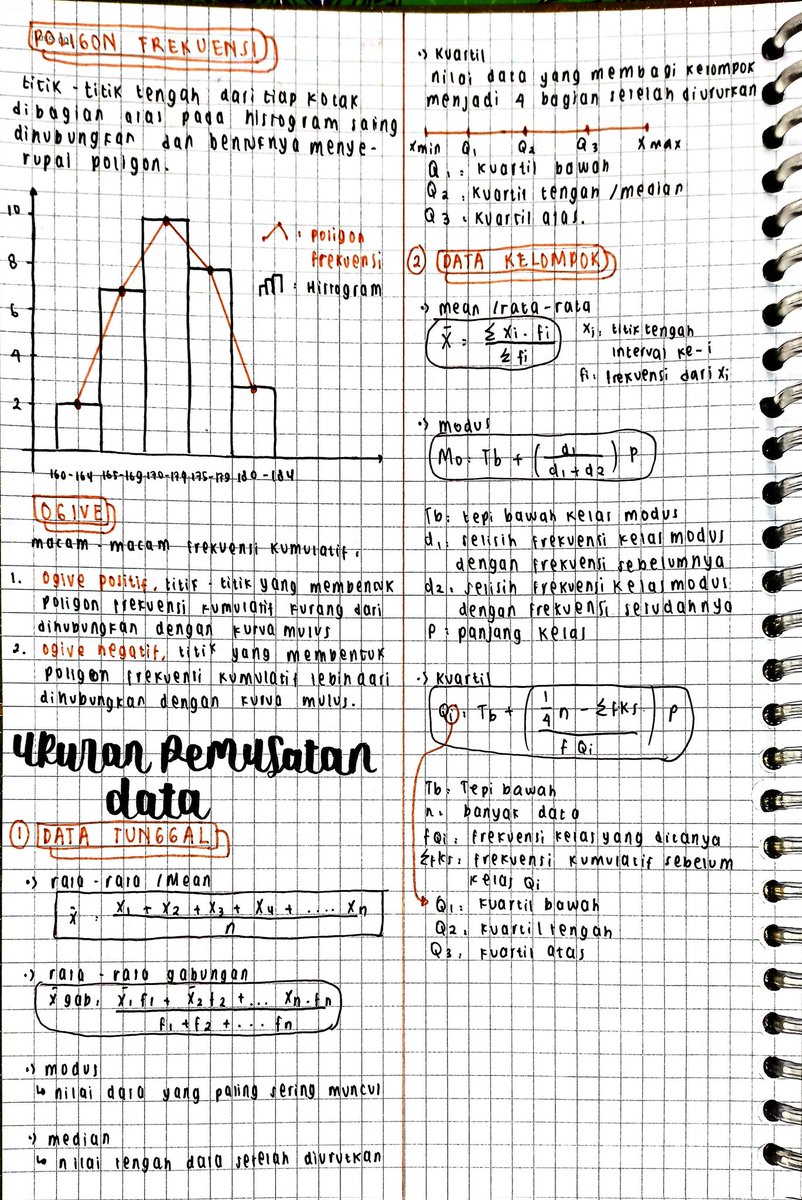 POLIGON FREKUENSI
titik - titik tengah dari tiap kotak
dibagian atas pada histrogram saing
dihubungkan dan bentufnya menye-
rupai poligon.
10
8
6
4
2
: poligon
frekuensi
: Histrogram
160-164 165-169 170-174 175-179 180-184
OGIVE
macam - macam frekuensi kumulatif.
1. ogive positif, titik - titik yang membentuk
poligon frekuensi kumulatif kurang dari
dihubungkan dengan kurva mulus
2. ogive negatif, titik yang membentuk
poligon frekuensi kumulatif lebih dari
dihubungkan dengan kurva mulus.
UKURAN PEMUSATAN
data
① DATA TUNGGAL
•) rata - rata /Mean
x̄ : (x₁ + x₂ + x₃ + x₄ + .... xn) / n
•) rata - rata gabungan
x̄ gab: (x̄₁f₁ + x̄₂f₂ + ... xn.fn) / (f₁ + f₂ + ... fn)
•) modus
↳ nilai data yang paling sering muncul
•) median
↳ nilai tengah data setelah diurutkan
•) Kuartil
nilai data yang membagi kelompok
menjadi 4 bagian setelah diurutkan
Xmin Q₁ Q₂ Q₃ Xmax
Q₁ : kuartil bawah
Q₂ : kuartil tengah /median
Q₃ : kuartil atas.
② DATA KELOMPOK
•) mean /rata-rata
X̄ = (Σ xi . fi) / (Σ fi)
xi : titik tengah
interval ke-i
fi : frekuensi dari xi
•) modus
Mo : Tb + (d₁ / (d₁+d₂)) P
Tb : tepi bawah kelas modus
d₁ : selisih frekuensi kelas modus
dengan frekuensi sebelumnya
d₂ : selisih frekuensi kelas modus
dengan frekuensi sesudahnya
P : panjang kelas
•) kuartil
Qi : Tb + ((1/4 n - Σfks) / f Qi) P
Tb : Tepi bawah
n : banyak data
fQi : frekuensi kelas yang ditanya
Σfks : frekuensi kumulatif sebelum
kelas Qi
Q₁ : kuartil bawah
Q₂ : kuartil tengah
Q₃ : kuartil atas